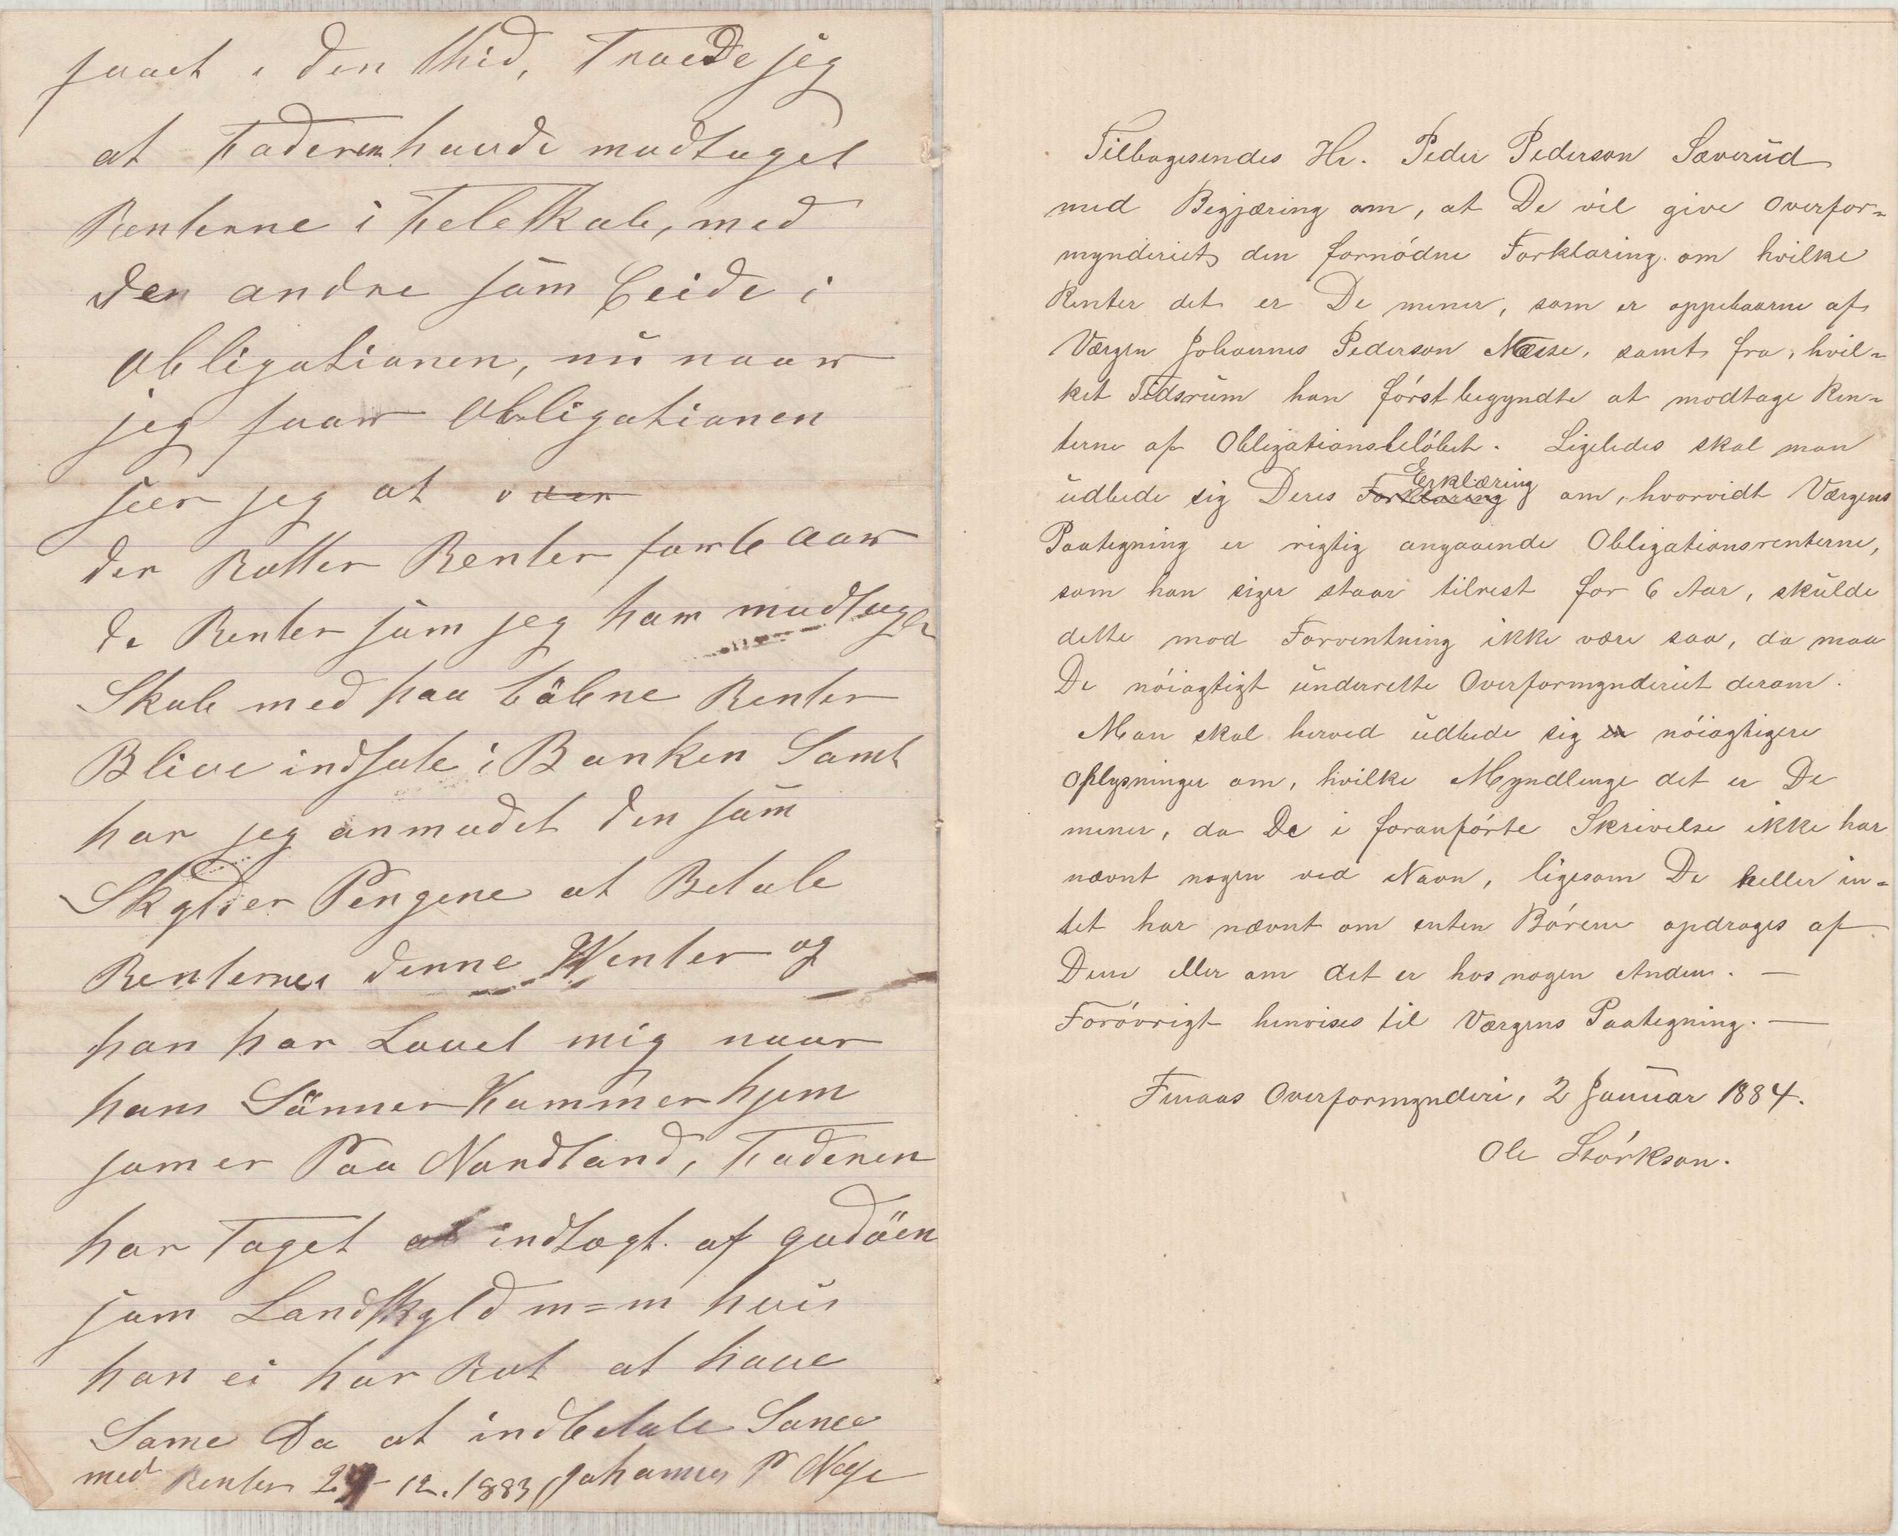 faaet i den thid, Troede jeg
at Faderen havde modtaget
Renterne i Feleskab, med
den andre som Eeide i
Obligationen, nu naar
jeg faar Obligationen
seer jeg at
der Rotter Renter for 6 aar
de Renter som jeg har modtaget
Skal med paa Løbne Renter
Blive indsate i Banken Samt
har jeg anmodet den som
Skylder Pengene at Betale
Renterne denne Venter og
han har Lovet mig naar
hans Sønner Kommer hjem
som er Paa Nordland, Faderen
har Taget indtægt af godøen
som Landskyld m=m hvis
han ei har Ret at have
Same Da at indbetale Same
med Renter 29-12.1883 Johannes P Næse
Tilbagesendes Hr. Peder Pederson Sæverud
med Begjæring om, at De vil give Overfor=
mynderiet den fornødne Forklaring om hvilke
Renter det er De mener, som er oppebaarne af
Værgen Johannes Pederson Næsse, samt fra hvil=
ket Tidsrum han først begyndte at modtage Ren=
terne af Obligationsbeløbet. Ligeledes skal man
udbede sig Deres Forklaring Erklæring om, hvorvidt Værgens
Paategning er rigtig angaaende Obligationsrenterne,
som han siger staar tilrest for 6 Aar, skulde
dette mod Forventning ikke være saa, da maa
De nøiagtigt underrette Overformynderiet derom.
Man skal herved udbede sig en nøiagtigere
Oplysninger om, hvilke Myndlinge det er De
mener, da De i foranførte Skrivelse ikke har
nævnt nogen ved Navn, ligesom De heller in=
tet har nævnt om enten Børene opdrages af
Dem eller om det er hos nogen Anden. —
Forøvrigt henvises til Værgens Paategning. —
Finaas Overformynderi, 2 Januar 1884.
Ole Størkson.